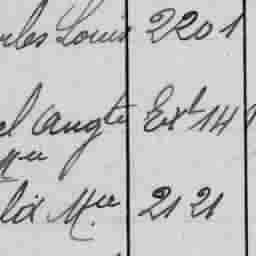 rles Louis 2201
el Augte Ext 14
Mie
la Mie 2121